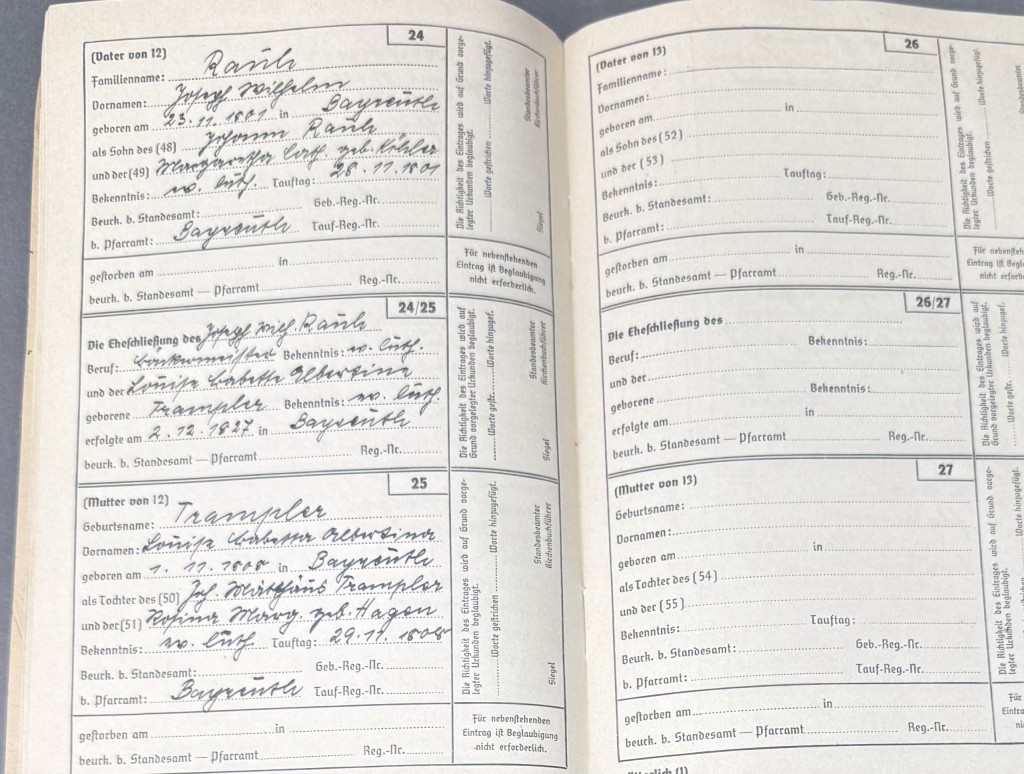 24
(Vater von 12)
Familienname: Rauh
Vornamen: Joseph Wilhelm
geboren am 23. 11. 1801 in Bayreuth
als Sohn des (48) Johann Rauh
und der (49) Margaretha Cath. geb. Köhler
Bekenntnis: ev. luth. Tauftag: 28. 11. 1801
Beurk. b. Standesamt: Geb.-Reg.-Nr.
b. Pfarramt: Bayreuth Tauf-Reg.-Nr.
gestorben am in
beurk. b. Standesamt — Pfarramt Reg.-Nr.
Die Richtigkeit des Eintrages wird auf Grund vorge-
legter Urkunden beglaubigt.
Worte gestrichen Worte hinzugefügt.
Standesbeamter
Kirchenbuchführer
Siegel
Für nebenstehenden
Eintrag ist Beglaubigung
nicht erforderlich.
24/25
Die Eheschließung des Joseph Wilh. Rauh
Beruf: Bäckermeister Bekenntnis: ev. luth.
und der Louise Babette Albertine
geborene Trampler Bekenntnis: ev. luth.
erfolgte am 2. 12. 1827 in Bayreuth
beurk. b. Standesamt — Pfarramt Reg.-Nr.
Die Richtigkeit des Eintrages wird auf
Grund vorgelegter Urkunden beglaubigt.
Worte gestr. Worte hinzugef.
Standesbeamter
Kirchenbuchführer
Siegel
25
(Mutter von 12)
Geburtsname: Trampler
Vornamen: Louise Babetta Albertina
geboren am 1. 11. 1808 in Bayreuth
als Tochter des (50) Joh. Matthäus Trampler
und der (51) Rosina Marg. geb. Hagen
Bekenntnis: ev. luth Tauftag: 29. 11. 1808
Beurk. b. Standesamt: Geb.-Reg.-Nr.
b. Pfarramt: Bayreuth Tauf-Reg.-Nr.
gestorben am in
beurk. b. Standesamt — Pfarramt Reg.-Nr.
Die Richtigkeit des Eintrages wird auf Grund vorge-
legter Urkunden beglaubigt.
Worte gestrichen Worte hinzugefügt.
Standesbeamter
Kirchenbuchführer
Siegel
Für nebenstehenden
Eintrag ist Beglaubigung
nicht erforderlich.
26
(Vater von 13)
Familienname:
Vornamen:
geboren am in
als Sohn des (52)
und der (53)
Bekenntnis: Tauftag:
Beurk. b. Standesamt: Geb.-Reg.-Nr.
b. Pfarramt: Tauf-Reg.-Nr.
gestorben am in
beurk. b. Standesamt — Pfarramt Reg.-Nr.
Die Richtigkeit des Eintrages wird auf Grund vorge-
legter Urkunden beglaubigt.
Worte gestrichen Worte hinzugefügt.
Standesbeamter
Kirchenbuchführer
Für nebensteh
Eintrag ist Begla
nicht erforder
26/27
Die Eheschließung des
Beruf: Bekenntnis:
und der
geborene Bekenntnis:
erfolgte am in
beurk. b. Standesamt — Pfarramt Reg.-Nr.
Die Richtigkeit des Eintrages wird auf
Grund vorgelegter Urkunden beglaubigt.
Worte gestr. Worte hinzugef.
27
(Mutter von 13)
Geburtsname:
Vornamen:
geboren am in
als Tochter des (54)
und der (55)
Bekenntnis: Tauftag:
Beurk. b. Standesamt: Geb.-Reg.-Nr.
b. Pfarramt: Tauf-Reg.-Nr.
gestorben am in
beurk. b. Standesamt — Pfarramt Reg.-Nr.
Die Richtigkeit des Eintrages wird auf Grund vorge-
legter Urkunden beglaubigt.
Worte gestrichen Worte hinzugefügt.
Für
Eintra
ni